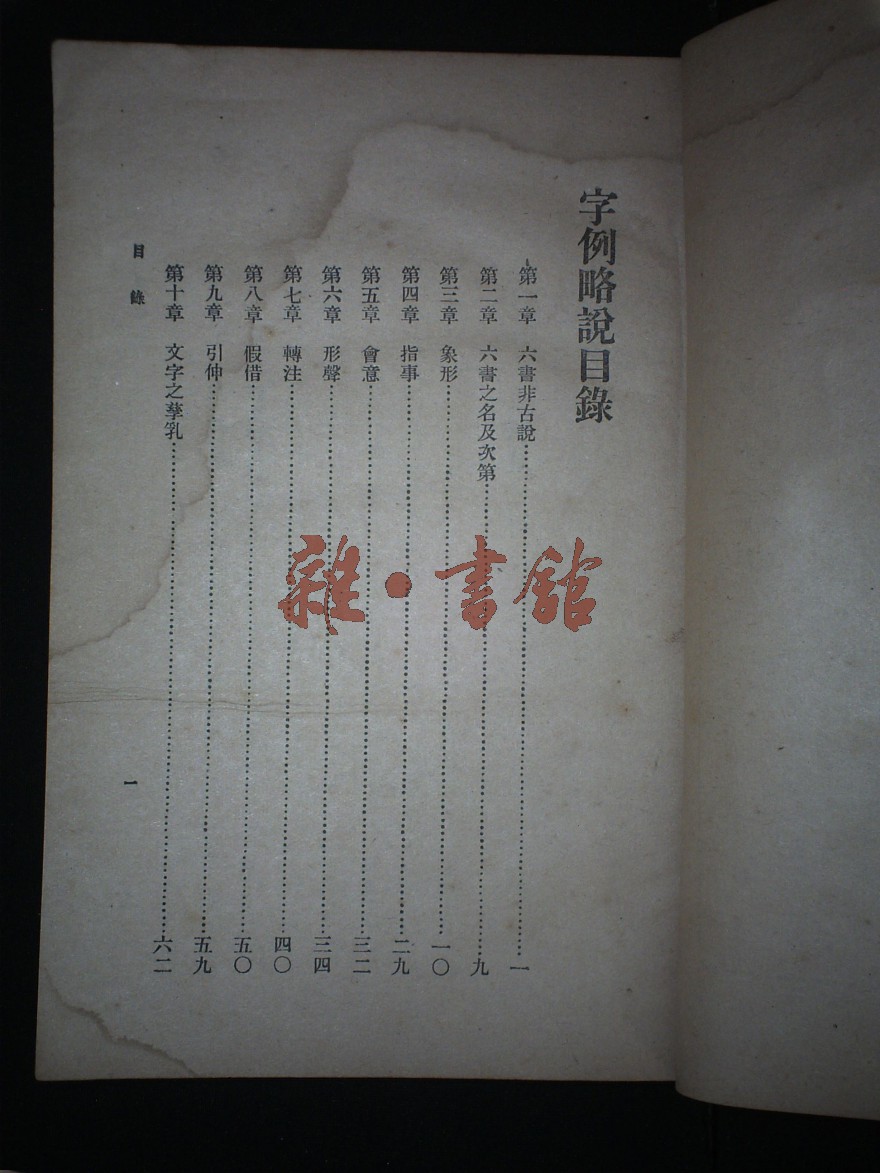 字例略說目錄
第一章　六書非古說…………一
第二章　六書之名及次第…………九
第三章　象形…………一〇
第四章　指事…………二九
第五章　會意…………三二
第六章　形聲…………三四
第七章　轉注…………四〇
第八章　假借…………五〇
第九章　引伸…………五九
第十章　文字之孳乳…………六二
目錄
一
雜·書館